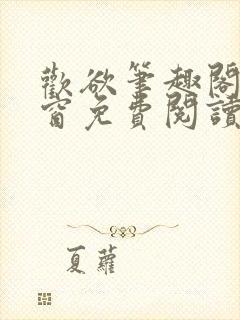 歡欲筆趣閣
窗免費閱讀
夏蘿